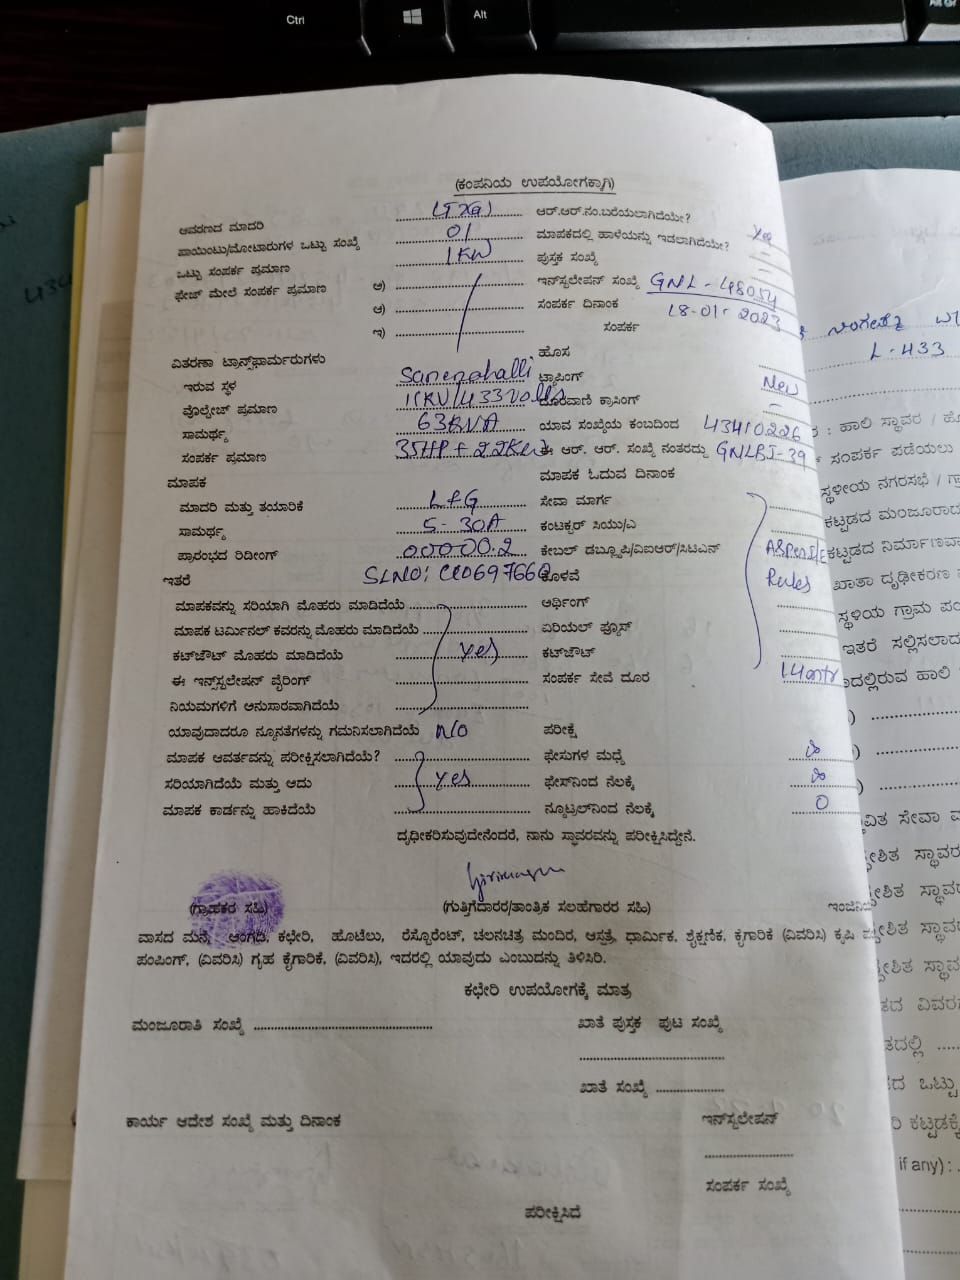 Ctrl
Alt
(ಕಂಪನಿಯ ಉಪಯೋಗಕ್ಕಾಗಿ)
ಆವರಣದ ಮಾದರಿ ಆರ್.ಆರ್.ನಂ.ಬರೆಯಲಾಗಿದೆಯೇ? Yes
ಪಾಯಿಂಟು/ಮೋಟಾರುಗಳ ಒಟ್ಟು ಸಂಖ್ಯೆ 01 ಮಾಪಕದಲ್ಲಿ ಹಾಳೆಯನ್ನು ಇಡಲಾಗಿದೆಯೇ? –
ಒಟ್ಟು ಸಂಪರ್ಕ ಪ್ರಮಾಣ 1KW ಪುಸ್ತಕ ಸಂಖ್ಯೆ –
ಫೇಜ್ ಮೇಲೆ ಸಂಪರ್ಕ ಪ್ರಮಾಣ ಅ) ಇನ್‌ಸ್ಟಲೇಷನ್ ಸಂಖ್ಯೆ GNL - 48054
ಆ) ಸಂಪರ್ಕ ದಿನಾಂಕ 18-01-2023
ಇ) ಸಂಪರ್ಕ
ವಿತರಣಾ ಟ್ರಾನ್ಸ್‌ಫಾರ್ಮರುಗಳು ಹೊಸ
ಇರುವ ಸ್ಥಳ Sanenahalli ಟ್ಯಾಪಿಂಗ್ New
ವೋಲ್ಟೇಜ್ ಪ್ರಮಾಣ 11KV/433Volts ದೂರವಾಣಿ ಕ್ರಾಸಿಂಗ್ –
ಸಾಮರ್ಥ್ಯ 63KVA ಯಾವ ಸಂಖ್ಯೆಯ ಕಂಬದಿಂದ 43410226
ಸಂಪರ್ಕ ಪ್ರಮಾಣ 35HP + 22KW ಈ ಆರ್. ಆರ್. ಸಂಖ್ಯೆ ನಂತರದ್ದು GNLBJ-39
ಮಾಪಕ ಮಾಪಕ ಓದುವ ದಿನಾಂಕ
ಮಾದರಿ ಮತ್ತು ತಯಾರಿಕೆ L&G ಸೇವಾ ಮಾರ್ಗ
ಸಾಮರ್ಥ್ಯ 5-30A ಕಂಟಕ್ಟರ್ ಸಿಯು/ಎ
ಪ್ರಾರಂಭದ ರಿಡೀಂಗ್ 00000.2 ಕೇಬಲ್ ಡಬ್ಲ್ಯೂಪಿ/ವಿಐಆರ್/ಸಿಟಿಎನ್ As Per
ಇತರೆ SLNO: ಕೊಳವೆ Rules
ಮಾಪಕವನ್ನು ಸರಿಯಾಗಿ ಮೊಹರು ಮಾಡಿದೆಯೆ ಅರ್ಥಿಂಗ್
ಮಾಪಕ ಟರ್ಮಿನಲ್ ಕವರನ್ನು ಮೊಹರು ಮಾಡಿದೆಯೆ ಏರಿಯಲ್ ಫ್ಯೂಸ್
ಕಟ್‌ಔಟ್ ಮೊಹರು ಮಾಡಿದೆಯೆ yes ಕಟ್‌ಔಟ್
ಈ ಇನ್‌ಸ್ಟಲೇಷನ್ ವೈರಿಂಗ್ ಸಂಪರ್ಕ ಸೇವೆ ದೂರ
ನಿಯಮಗಳಿಗೆ ಅನುಸಾರವಾಗಿದೆಯೆ
ಯಾವುದಾದರೂ ನ್ಯೂನತೆಗಳನ್ನು ಗಮನಿಸಲಾಗಿದೆಯೆ No ಪರೀಕ್ಷೆ
ಮಾಪಕ ಆವರ್ತವನ್ನು ಪರೀಕ್ಷಿಸಲಾಗಿದೆಯೆ? ಫೇಸುಗಳ ಮಧ್ಯೆ
ಸರಿಯಾಗಿದೆಯೆ ಮತ್ತು ಆದು yes ಫೇಸ್‌ನಿಂದ ನೆಲಕ್ಕೆ
ಮಾಪಕ ಕಾರ್ಡನ್ನು ಹಾಕಿದೆಯೆ ನ್ಯೂಟ್ರಲ್‌ನಿಂದ ನೆಲಕ್ಕೆ 0
ದೃಢೀಕರಿಸುವುದೇನೆಂದರೆ, ನಾನು ಸ್ಥಾವರವನ್ನು ಪರೀಕ್ಷಿಸಿದ್ದೇನೆ.
(ಗ್ರಾಹಕರ ಸಹಿ) (ಗುತ್ತಿಗೆದಾರರ/ತಾಂತ್ರಿಕ ಸಲಹೆಗಾರರ ಸಹಿ)
ವಾಸದ ಮನೆ, ಅಂಗಡಿ, ಕಛೇರಿ, ಹೊಟೆಲು, ರೆಸ್ಟೊರೆಂಟ್, ಚಲನಚಿತ್ರ ಮಂದಿರ, ಆಸ್ಪತ್ರೆ, ಧಾರ್ಮಿಕ, ಶೈಕ್ಷಣಿಕ, ಕೈಗಾರಿಕೆ (ವಿವರಿಸಿ) ಕೃಷಿ
ಪಂಪಿಂಗ್, (ವಿವರಿಸಿ) ಗೃಹ ಕೈಗಾರಿಕೆ, (ವಿವರಿಸಿ), ಇದರಲ್ಲಿ ಯಾವುದು ಎಂಬುದನ್ನು ತಿಳಿಸಿರಿ.
ಕಛೇರಿ ಉಪಯೋಗಕ್ಕೆ ಮಾತ್ರ
ಮಂಜೂರಾತಿ ಸಂಖ್ಯೆ ಖಾತೆ ಪುಸ್ತಕ ಪುಟ ಸಂಖ್ಯೆ
ಖಾತೆ ಸಂಖ್ಯೆ
ಕಾರ್ಯ ಆದೇಶ ಸಂಖ್ಯೆ ಮತ್ತು ದಿನಾಂಕ ಇನ್‌ಸ್ಟಲೇಷನ್
ಸಂಪರ್ಕ ಸಂಖ್ಯೆ
ಪರೀಕ್ಷಿಸಿದೆ
L-433
: ಹಾಲಿ ಸ್ಥಾವರ /
ಸಂಪರ್ಕ ಪಡೆಯಲು
ಸ್ಥಳೀಯ ನಗರಸಭೆ /
ಕಟ್ಟಡದ ಮಂಜೂರಾದ
ಕಟ್ಟಡದ ನಿರ್ಮಾಣ
ಖಾತಾ ದೃಢೀಕರಣ
ಸ್ಥಳಿಯ ಗ್ರಾಮ
ಇತರೆ ಸಲ್ಲಿಸಲಾದ
if any) :